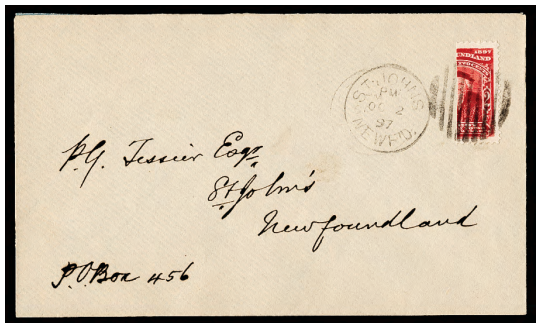 1897
UNDLAND
ST. JOHN'S
PM
OC 2
97
NEWF'D.
P.G. Tessier Esqr
St John's
Newfoundland
P.O. Box 456